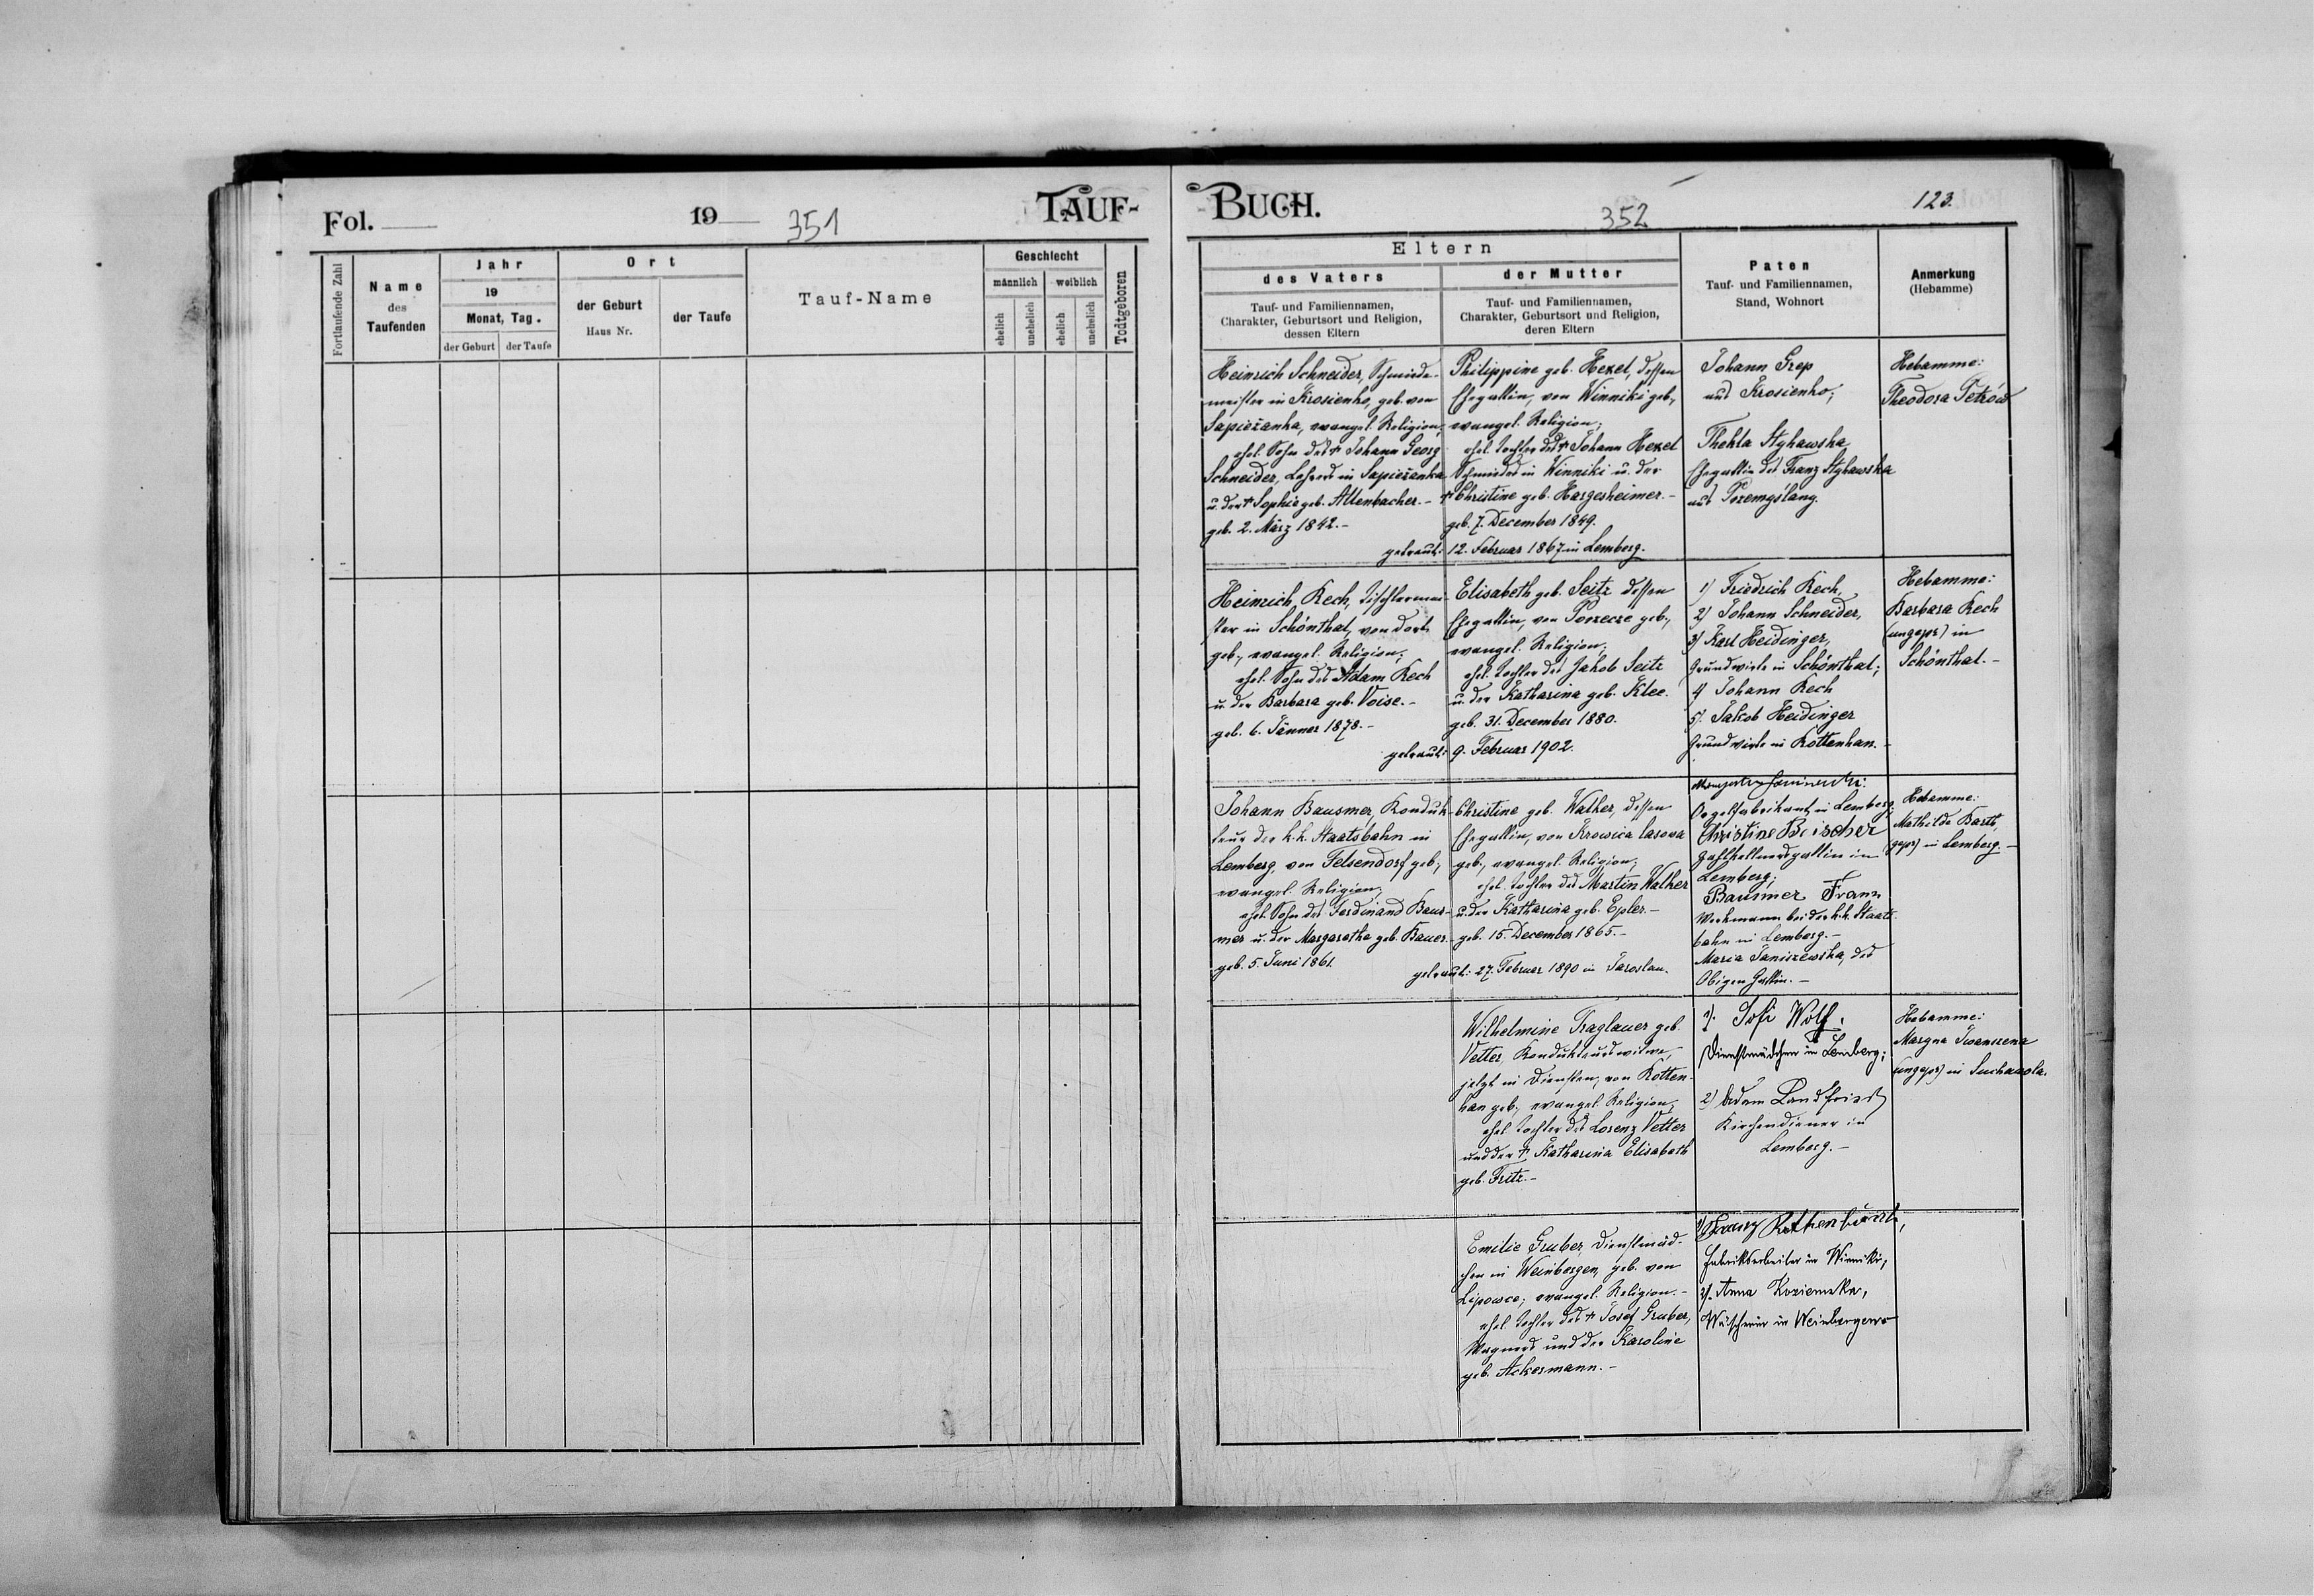 Fol.
19 351
TAUF-
Fortlaufende Zahl
Name
des
Taufenden
Jahr
19
Monat, Tag.
der Geburt
der Taufe
Ort
der Geburt
Haus Nr.
der Taufe
Tauf-Name
Geschlecht
männlich
weiblich
ehelich
unehelich
ehelich
unehelich
Todtgeboren
BUCH.
352
123.
Eltern
des Vaters
Tauf- und Familiennamen,
Charakter, Geburtsort und Religion,
dessen Eltern
der Mutter
Tauf- und Familiennamen,
Charakter, Geburtsort und Religion,
deren Eltern
Paten
Tauf- und Familiennamen,
Stand, Wohnort
Anmerkung
(Hebamme)
Heinrich Schneider, Schmiede-
meister in Krosienko, geb. von
Sapieżanka, evangel. Religion,
ehel. Sohn des † Johann Georg
Schneider, Lehrers in Sapieżanka
u. der † Sophie geb. Allenbacher.-
geb. 2. März 1842.-
getraut:
Philippine geb. Hexel, dessen
Ehegattin, von Winniki geb.,
evangel. Religion;
ehel. Tochter des † Johann Hexel
Schmiedes in Winniki u. der
† Christine geb. Hargesheimer.-
geb. 7. December 1849.
12. Februar 1867 in Lemberg.
Johann Grep
aus Krosienko;
Thekla Stykawska
Ehegattin des Franz Stykawska
aus Przemyślany.
Hebamme:
Theodora Petrów
Heinrich Kech, Tischlermei-
ster in Schönthal, von dort
geb., evangel. Religion;
ehel. Sohn des Adam Kech
u. der Barbara geb. Voise.-
geb. 6. Jänner 1878.-
getraut:
Elisabeth geb. Seitz dessen
Ehegattin, von Porzecze geb.,
evangel. Religion;
ehel. Tochter des Jakob Seitz
u. der Katharina geb. Klee.
geb. 31. December 1880.
9. Februar 1902.
1) Friedrich Kech,
2) Johann Schneider,
3) Karl Heidinger,
Grundwirte in Schönthal;
4) Johann Kech
5) Jakob Heidinger
Grundwirte in Rottenhan.-
Hebamme:
Barbara Kech
(ungepr) in
Schönthal.-
Johann Bausmer, Konduk-
teur der k.k. Staatsbahn in
Lemberg, von Felsendorf geb.,
evangel. Religion;
ehel. Sohn des Ferdinand Baus-
mer u. der Margaretha geb. Bauer.
geb. 5. Juni 1861.
getraut:
Christine geb. Walher, dessen
Ehegattin, von Krowica lasowa
geb., evangel. Religion;
ehel. Tochter des Martin Walher
u. der Katharina geb. Epler.-
geb. 15. December 1865.-
27. Februar 1890 in Jaroslau.
Orgelfabrikant in Lemberg;
Christine Beischer
Zahlkellnersgattin in
Lemberg;
Bausmer Franz
Werkmann bei der k.k. Staats-
bahn in Lemberg.-
Maria Janiszewska, des
Obigen Gattin.-
Hebamme:
Mathilde Barth,
(gepr) in Lemberg.-
Wilhelmine Traglauer geb.
Vetter, Kondukteurswitwe,
jetzt in Diensten, von Rotten-
han geb., evangel. Religion,
ehel. Tochter des Lorenz Vetter
und der † Katharina Elisabeth
geb. Fritz.-
1). Sofi Wolf.
Dienstmädchen in Lemberg;
2) Adam Landfried
Kirchendiener in
Lemberg.-
Hebamme:
Maryna
(ungepr) in Suchawola.
Emilie Gruber, Dienstmäd-
chen in Weinbergen, geb. von
Lipowce; evangel. Religion.-
ehel. Tochter des † Josef Gruber,
Wagners und der Karoline
geb. Ackermann.-
1) Franz
Fabriksarbeiter in Winniki,
2). Anna
Wäscherin in Weinbergen